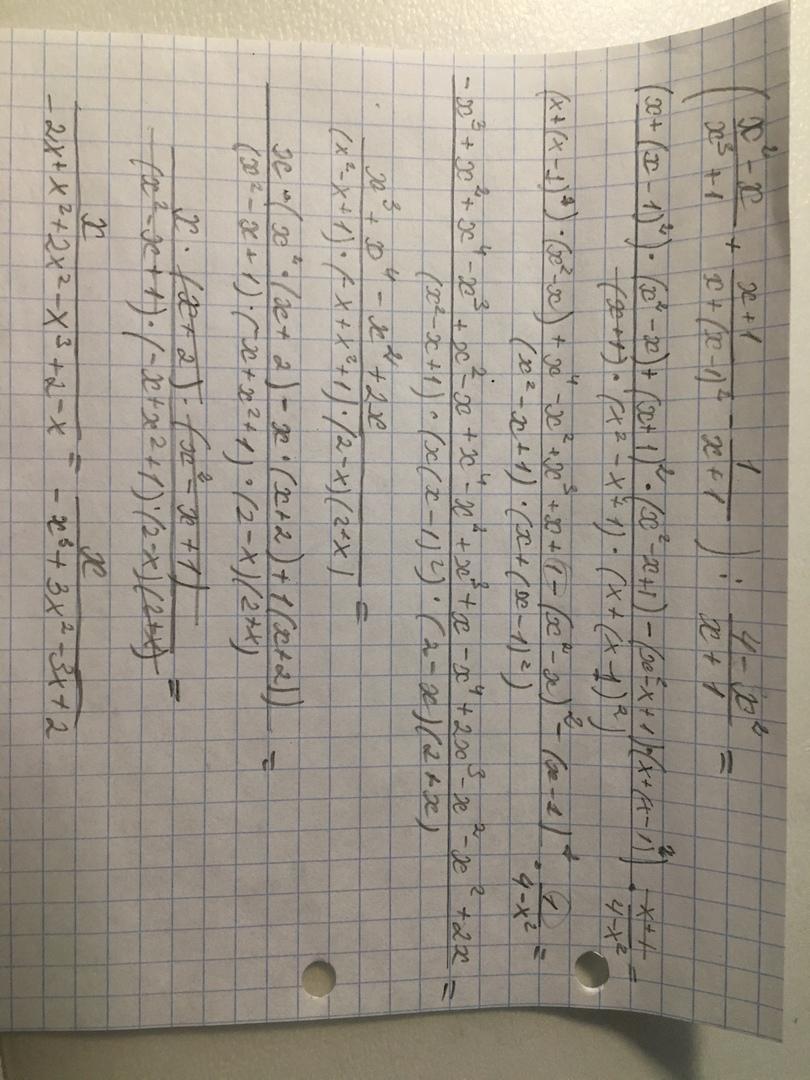 ( (x² - x)/(x³ + 1) + (x + 1)/(x + (x - 1)²) - 1/(x + 1) ) : (4 - x²)/(x + 1) =
((x + (x - 1)²) · (x² - x) + (x + 1)² · (x² - x + 1) - (x² - x + 1)(x + (x - 1)²))/((x + 1) · (x² - x + 1) · (x + (x - 1)²)) · (x + 1)/(4 - x²) =
((x + (x - 1)²) · (x² - x) + x⁴ - x² + x³ + x + 1 - (x² - x)² - (x - 1)²)/((x² - x + 1) · (x + (x - 1)²)) · 1/(4 - x²) =
(- x³ + x² + x⁴ - x³ + x² - x + x⁴ - x² + x³ + x - x⁴ + 2x³ - x² - x² + 2x)/((x² - x + 1) · (x(x - 1)²) · (2 - x)(2 + x)) =
(x³ + x⁴ - x² + 2x)/((x² - x + 1) · (-x + x² + 1) · (2 - x)(2 + x)) =
(x · (x² · (x + 2) - x · (x + 2) + 1(x + 2)))/((x² - x + 1) · (-x + x² + 1) · (2 - x)(2 + x)) =
(x · (x + 2) · (x² - x + 1))/((x² - x + 1) · (-x + x² + 1) · (2 - x)(2 + x)) =
x/(- 2x + x² + 2x² - x³ + 2 - x) = x/(- x³ + 3x² - 3x + 2)